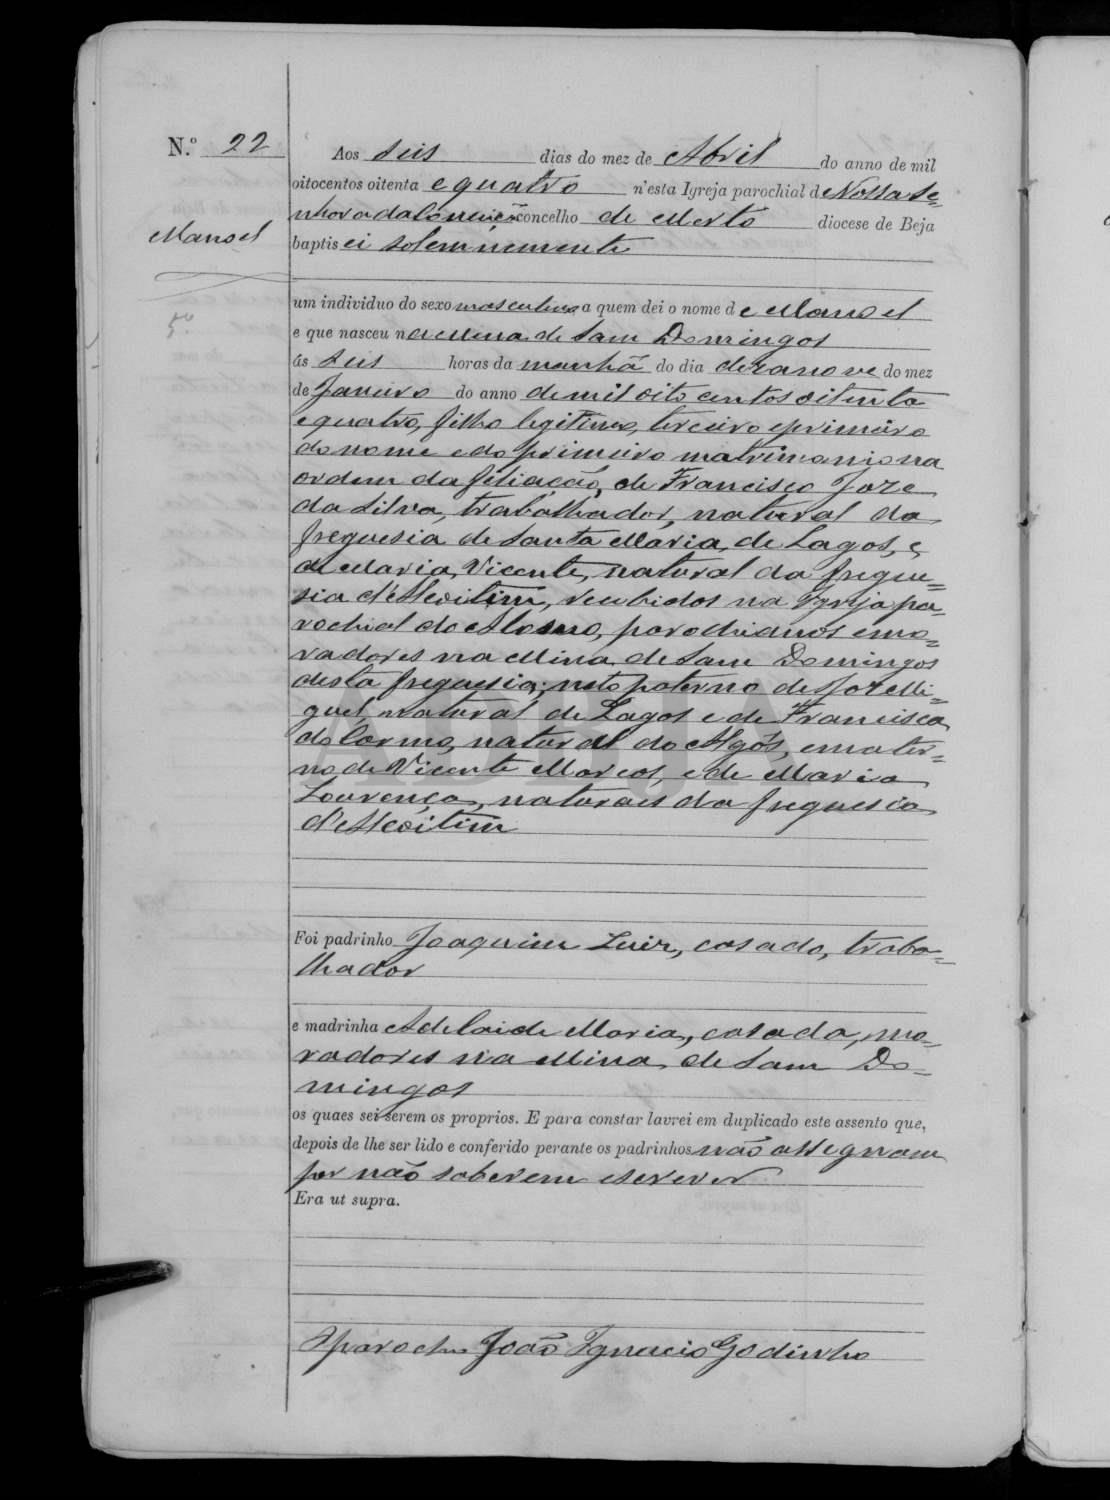 N.º 22
Manoel
Aos seis dias do mez de Abril do anno de mil
oitocentos oitenta e quatro n'esta Igreja parochial de Nossa Se=
nhora da Conceição concelho de Mertola diocese de Beja
baptisei solemnemente
um individuo do sexo masculino a quem dei o nome de Manoel
e que nasceu na Mina de Sam Domingos
ás seis horas da manhã do dia dezanove do mez
de Janeiro do anno de mil oito centos oitenta
e quatro, filho legitimo, terceiro e primeiro
do nome e do primeiro matrimonio na
ordem da filiação, de Francisco Joze
da Silva, trabalhador, natural da
freguesia de Santa Maria, de Lagos, e
de Maria Vicente, natural da fregue=
sia d'Alcoitim, recebidos na Igreja pa=
rochial do, parochianos e mo=
radores na Mina de Sam Domingos
desta freguesia; neto paterno de Joze Mi=
guel, natural de Lagos e de Francisca
do Carmo, natural do Algôs, e mater=
no de Vicente Marcos, e de Maria
Lourença, naturaes da freguesia
d'Alcoitim
Foi padrinho Joaquim Luiz, casado, traba=
lhador
e madrinha Adelaide Maria, casada, mo=
radores na Mina de Sam Do=
mingos
os quaes sei serem os proprios. E para constar lavrei em duplicado este assento que,
depois de lhe ser lido e conferido perante os padrinhos não assegnam
por não saberem escrever
Era ut supra.
O parocho João Ignacio Godinho